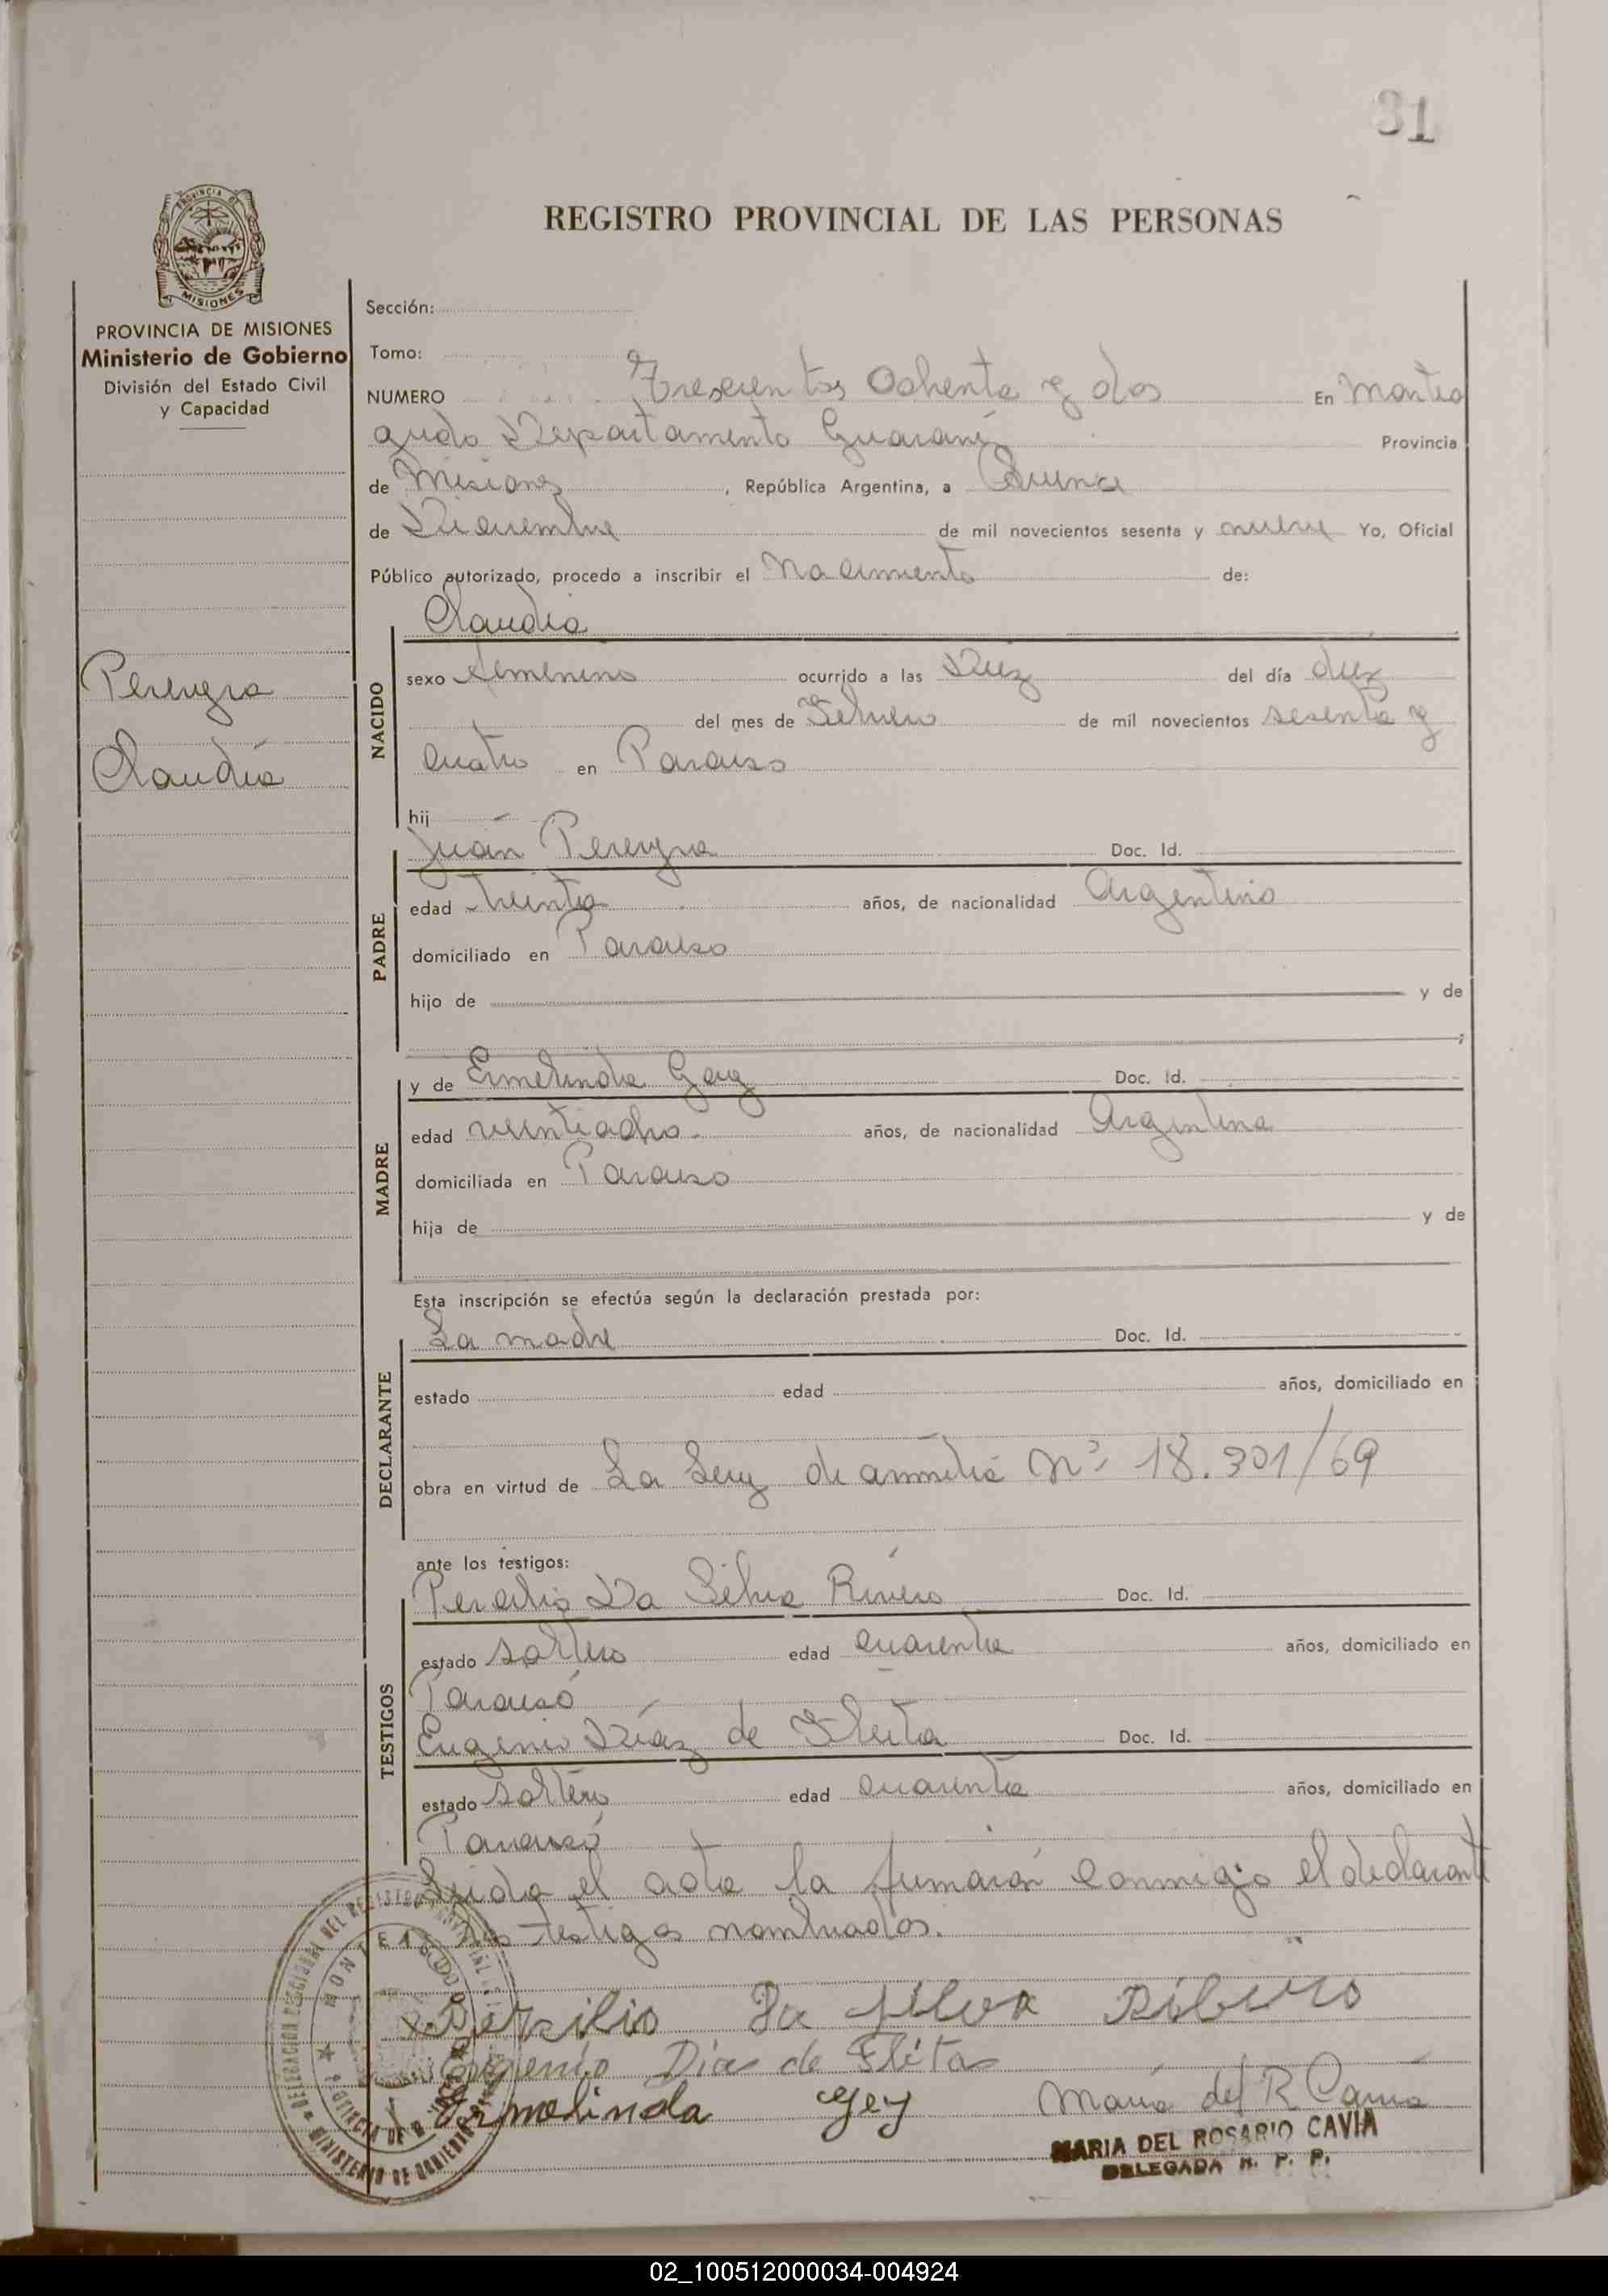 31
REGISTRO PROVINCIAL DE LAS PERSONAS
PROVINCIA DE MISIONES
Ministerio de Gobierno
División del Estado Civil
y Capacidad
Pereyra
Claudia
Sección:
Tomo:
NUMERO Trescientos Ochenta y dos En Montea
gudo Departamento Guaraní Provincia
de Misiones, República Argentina, a Quince
de Diciembre de mil novecientos sesenta y nueve Yo, Oficial
Público autorizado, procedo a inscribir el Nacimiento de:
NACIDO
Claudia
sexo femenino ocurrido a las Diez del día diez
del mes de Febrero de mil novecientos sesenta y
cuatro en Paraiso
hij
PADRE
Juan Pereyra Doc. Id.
edad treinta años, de nacionalidad Argentino
domiciliado en Paraiso
hijo de y de
MADRE
y de Ermelinda Doc. Id.
edad veintiocho años, de nacionalidad Argentina
domiciliada en Paraiso
hija de y de
Esta inscripción se efectúa según la declaración prestada por:
DECLARANTE
La madre Doc. Id.
estado edad años, domiciliado en
obra en virtud de La Ley de amnitia Nº 18.301/69
ante los testigos:
TESTIGOS
Da Silva Doc. Id.
estado soltero edad cuarenta años, domiciliado en
Paraiso
Eugenio Díaz de Fleita Doc. Id.
estado soltero edad cuarenta años, domiciliado en
Paraiso
Leida el acta la firmaron conmigo el declarante
los testigos nombrados.
Persilio Da Silva Ribeiro
Eugenio Dias de Flitas
Ermelinda Gey
María del R Cavia
MARIA DEL ROSARIO CAVIA
DELEGADA R. P. P.
02_100512000034-004924